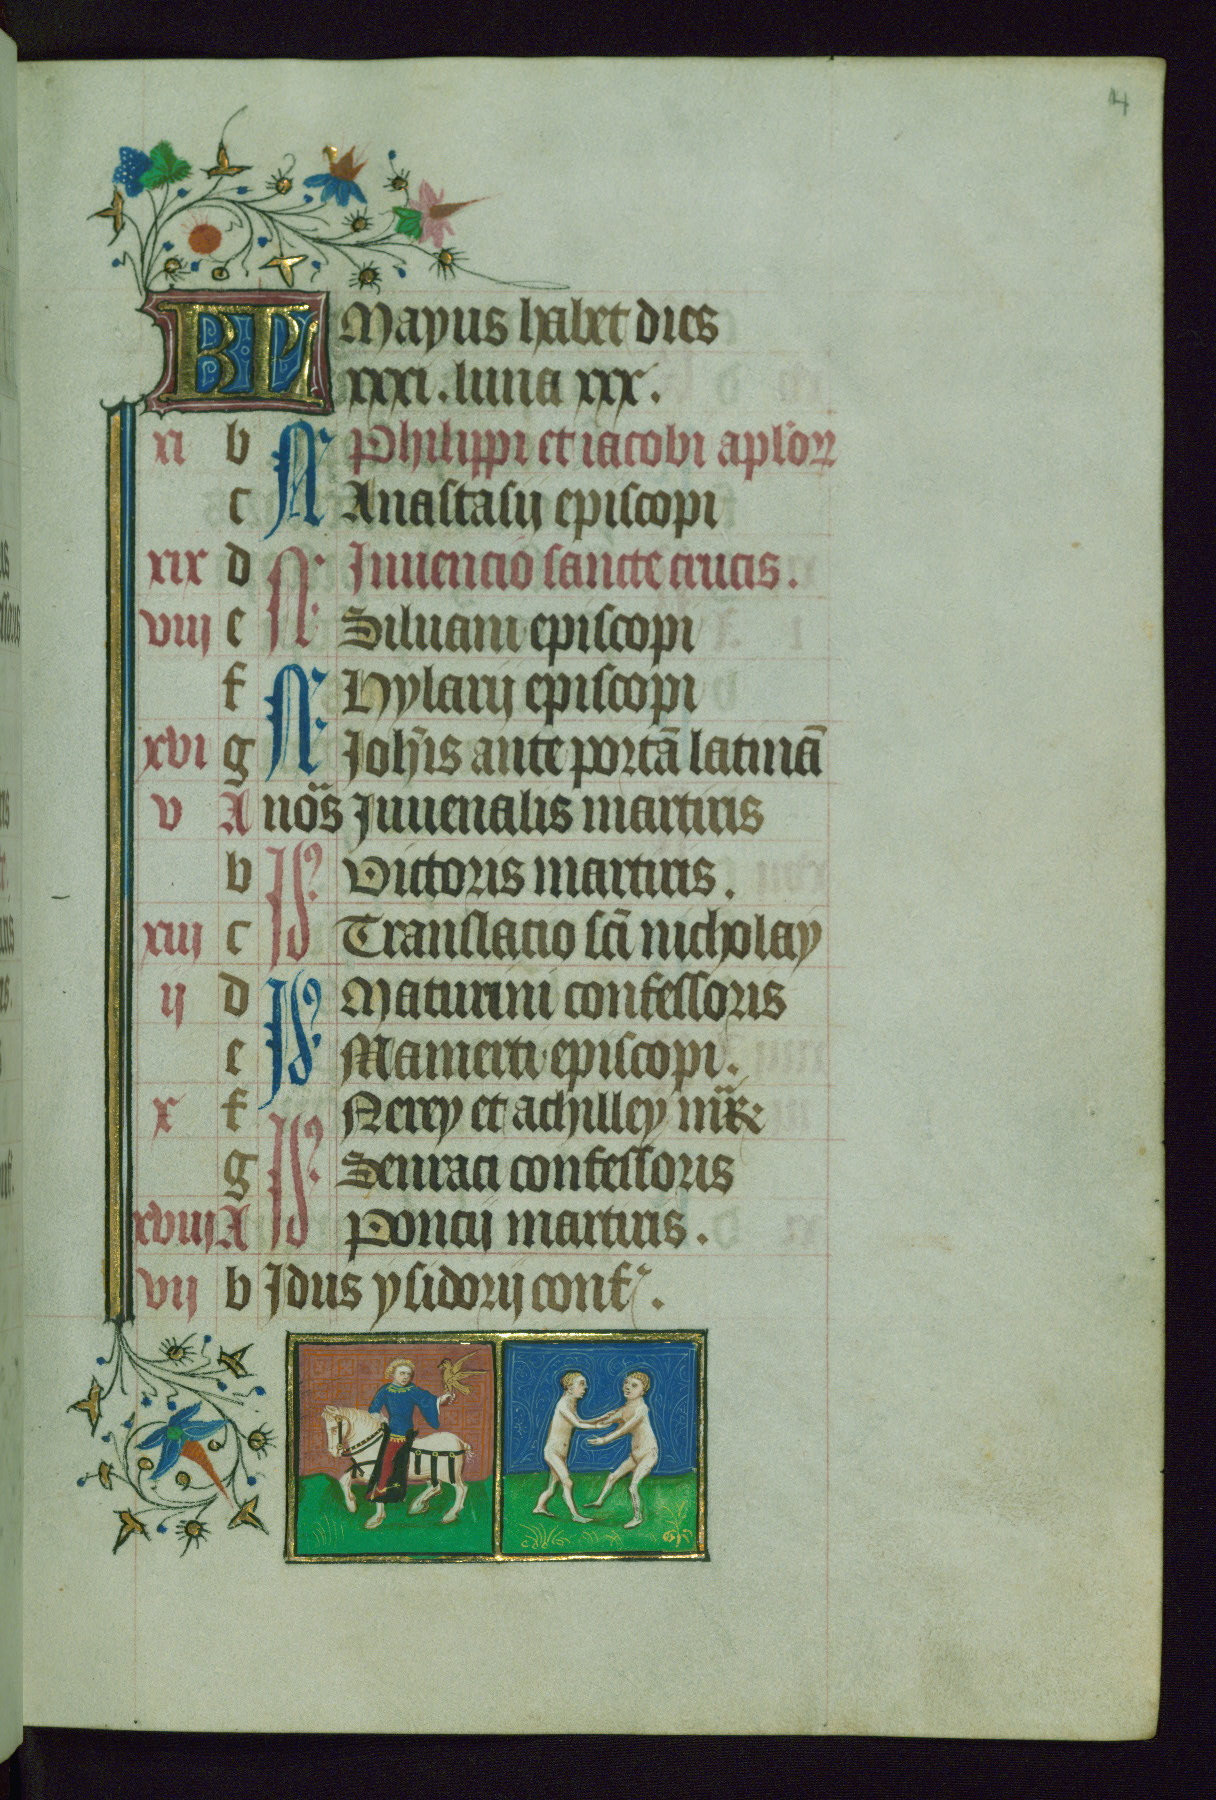 14
KL Mayus habet dies
xxxi. luna xxx.
xi b N Philippi et iacobi aplo&#42843;
c N Anastasij episcopi
xix d N Inuencio sancte crucis.
viij e N Siluani episcopi
f N Hylarij episcopi
xvi g N Joh̄is ante portā latinā
v A noˢ Juuenalis martiris
b Id Victoris martiris.
xiij c Id Translatio sc̄i nicholay
ij d Id Maturini confessoris
e Id Mamerti episcopi.
x f Id Nerey et achilley
g Id Seruaci confessoris
xviij A Id Poncij martiris.
vij b Idus ysidorij conf.